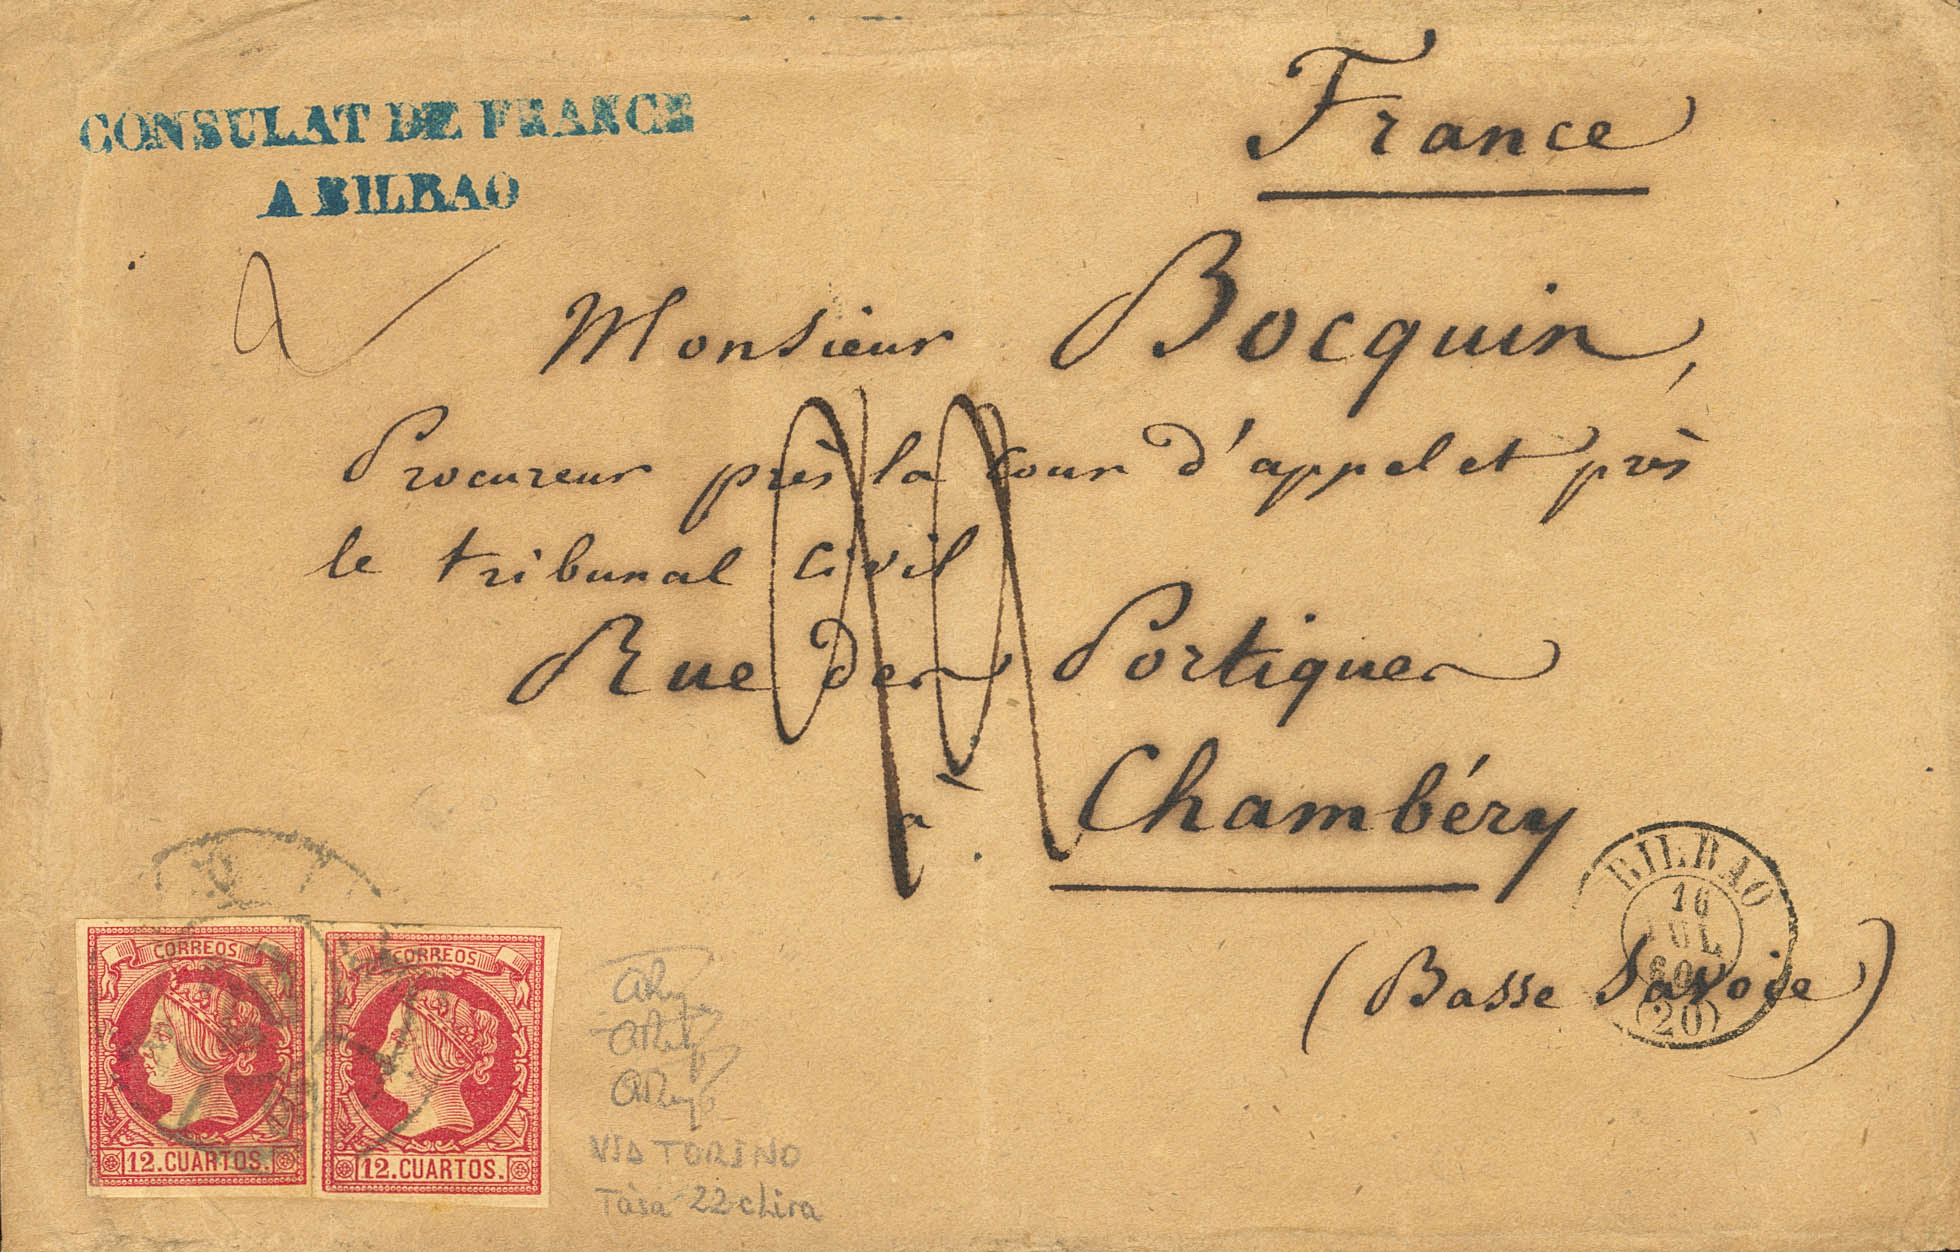 CONSULAT DE FRANCE
A BILBAO
France
Monsieur Bocquin,
Procureur près la Cour d'appel et près
le tribunal civil
Rue des Portiques
à Chambéry
(Basse Savoie)
BILBAO
16
JUL
60
(20)
CORREOS
12. CUARTOS.
CORREOS
12. CUARTOS.
VIA TORINO
Tasa 22 c Lira